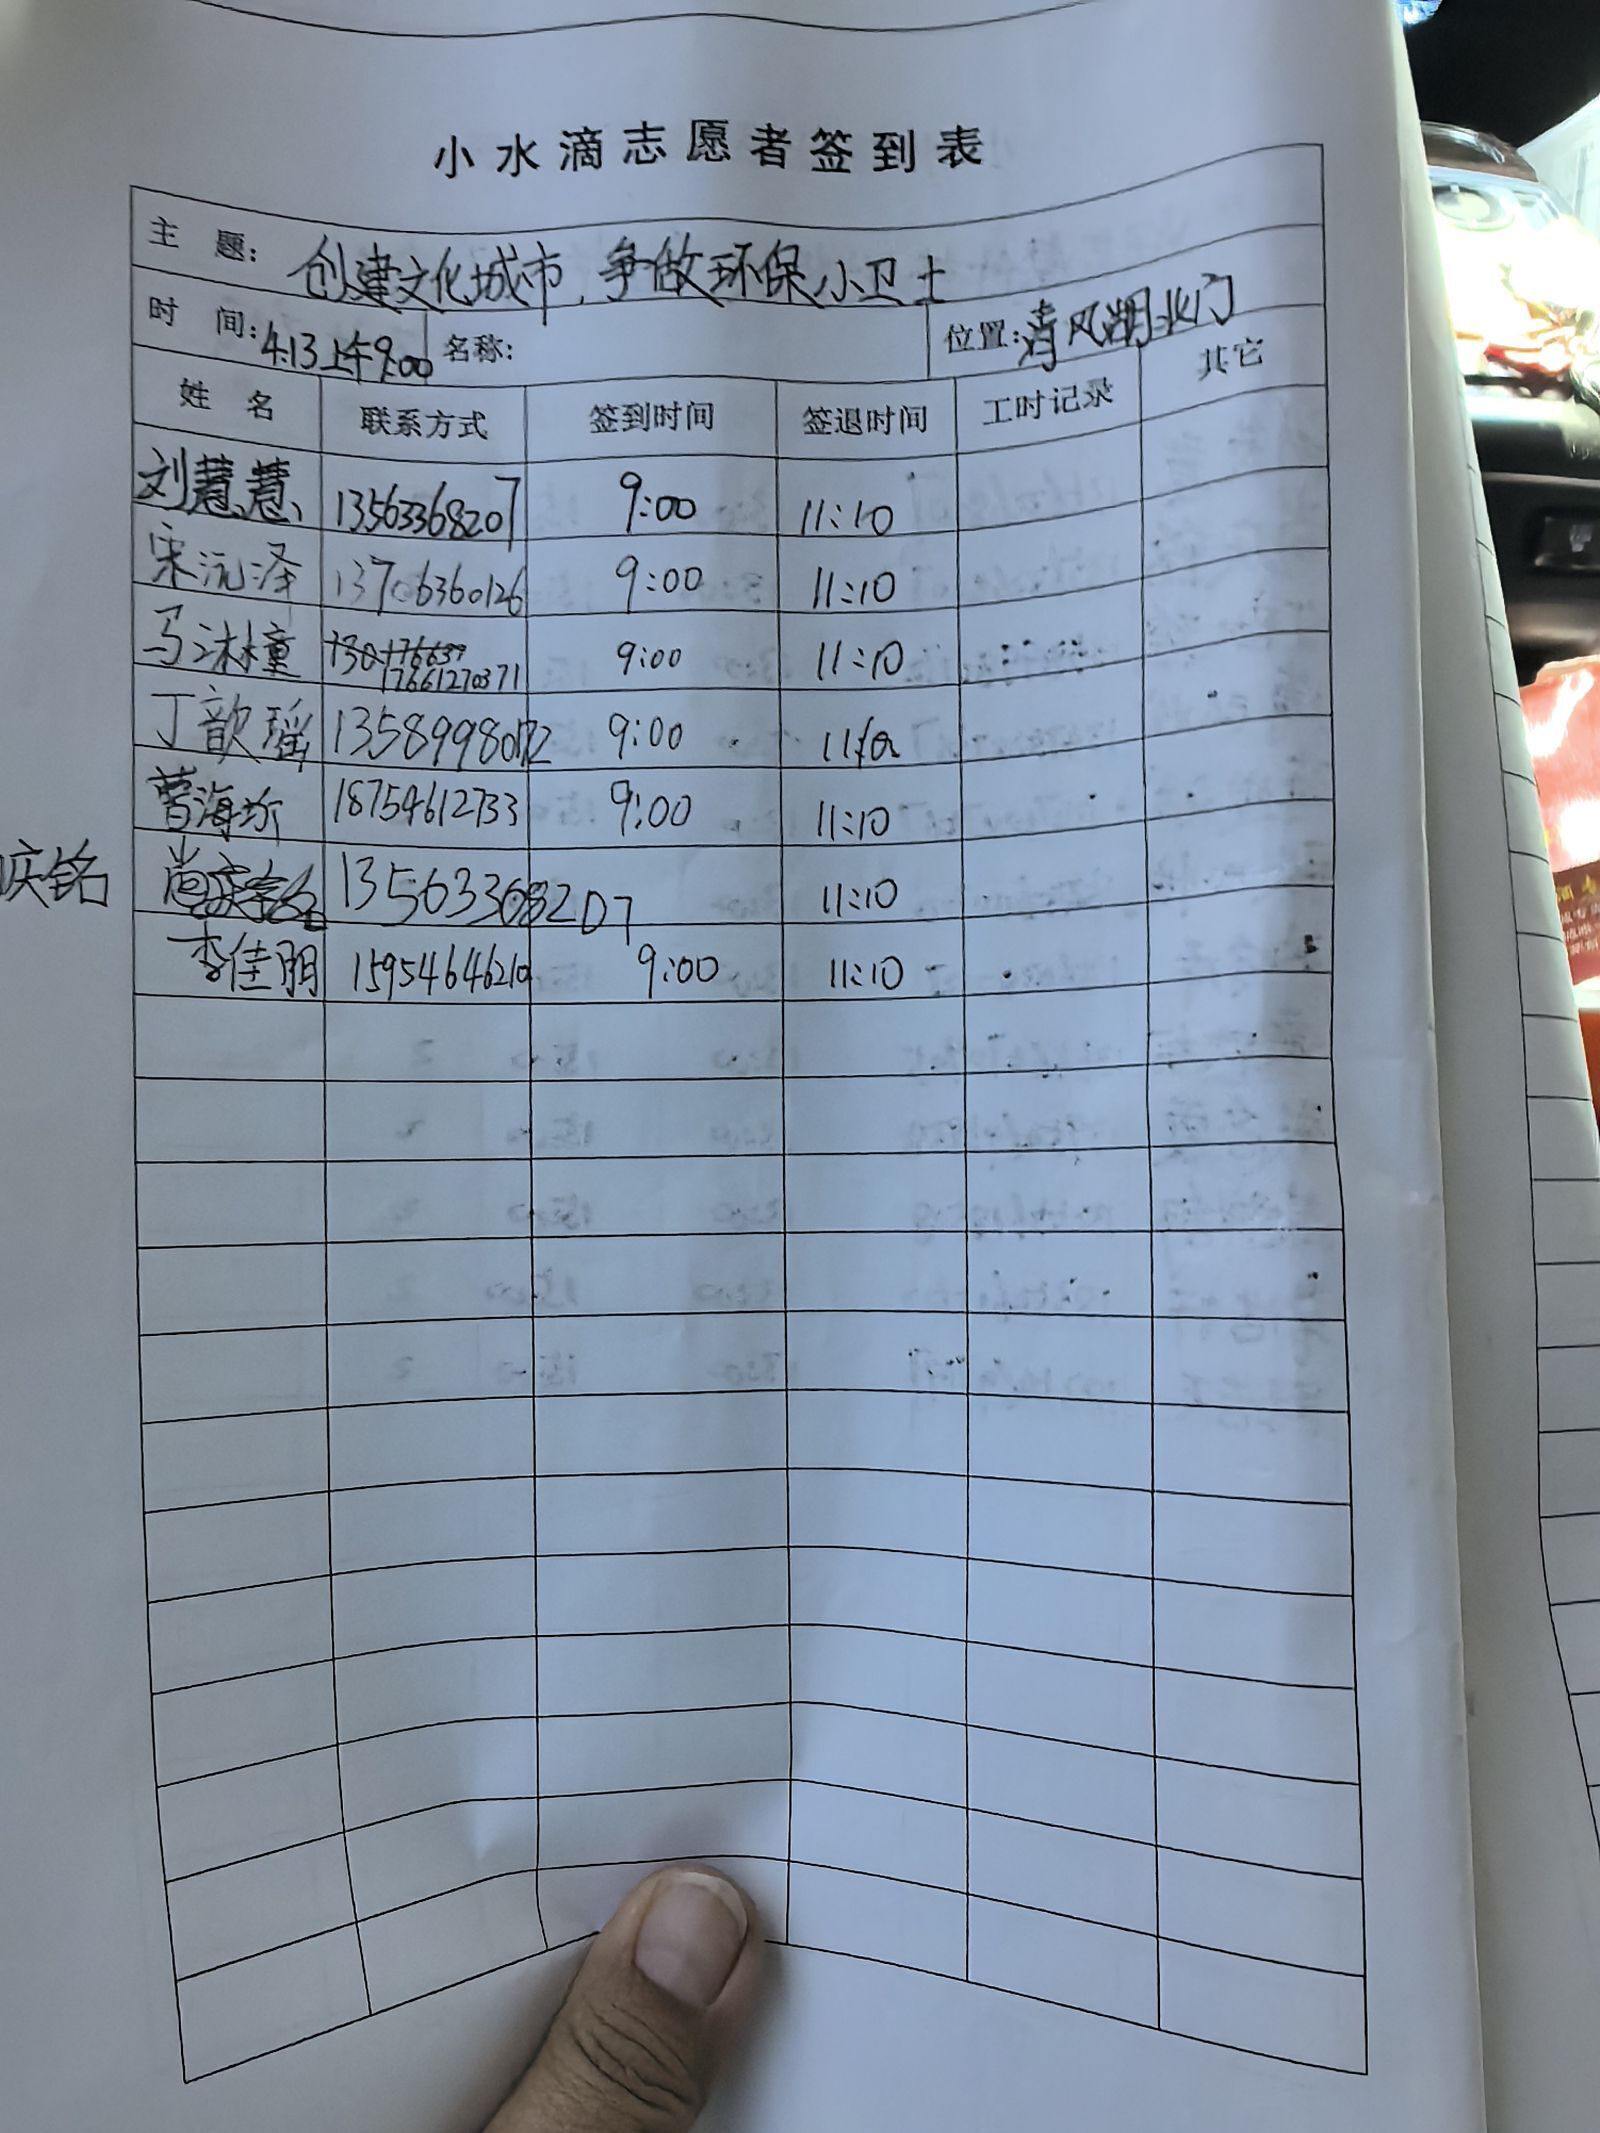 小水滴志愿者签到表
主 题: 创建文化城市,争做环保小卫士
时 间: 4.13上午9:00 名称: 位置: 清风湖北门
姓 名 联系方式 签到时间 签退时间 工时记录 其它
刘慧慧 13563368207 9:00 11:10
宋沅泽 13706360126 9:00 11:10
马沐橦 17661270371 9:00 11:10
丁歆瑶 9:00
曹海圻 18754612733 9:00 11:10
庆铭 尚 13563368207 11:10
李佳朋 15954646210 9:00 11:10